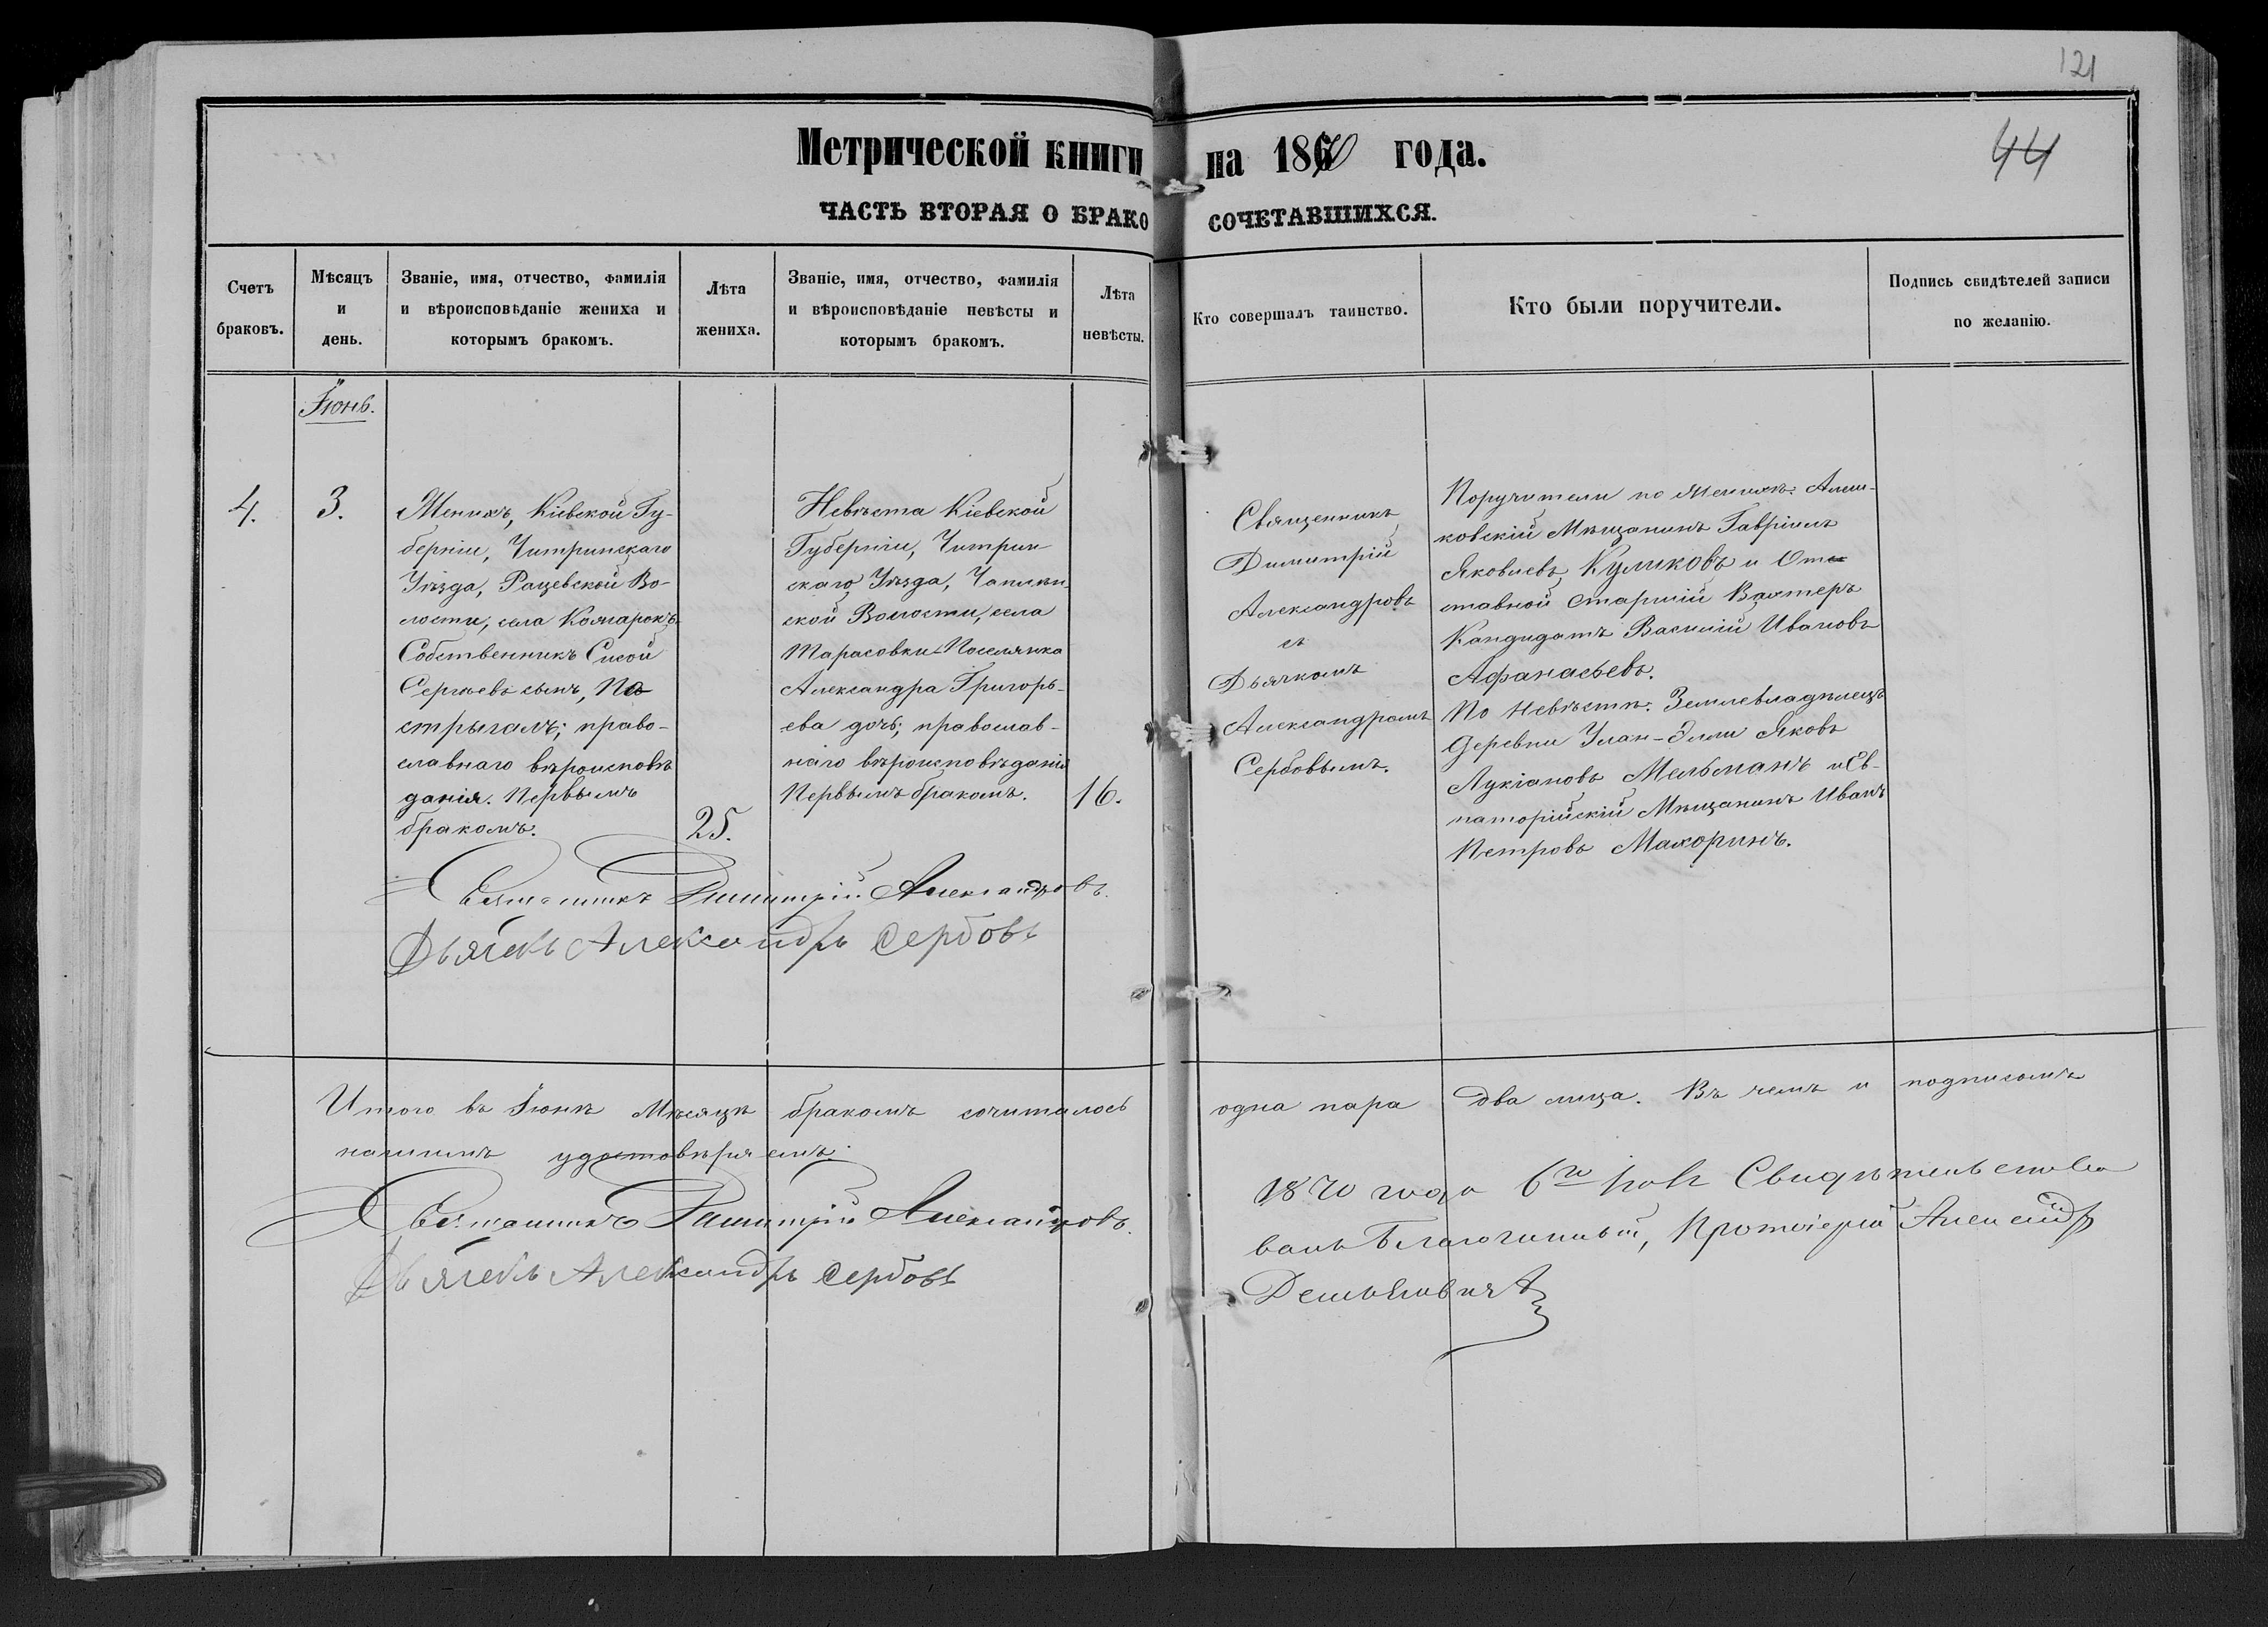 121
44
Метрической книги на 1870 года.
ЧАСТЬ ВТОРАЯ О БРАКОСОЧЕТАВШИХСЯ.
Счетъ
браковъ.
Мѣсяцъ
и
день.
Званіе, имя, отчество, фамилія
и вѣроисповѣданіе жениха и
которымъ бракомъ.
Лѣта
жениха.
Званіе, имя, отчество, фамилія
и вѣроисповѣданіе невѣсты и
которымъ бракомъ.
Лѣта
невѣсты.
Кто совершалъ таинство.
Кто были поручители.
Подпись свидѣтелей записи
по желанію.
Іюнь.
4.
3.
Женихъ, Кіевской Гу-
берніи, Чигринскаго
Уѣзда, Рацевской Во-
лости, села
Собственникъ Сисой
Сергѣевъ сынъ, Па
стрыгалъ; право-
славнаго вѣроисповѣ
данія. Первымъ
бракомъ.
25.
Невѣста Кіевской
Губерніи, Чигрин-
скаго Уѣзда,
ской Волости, села
Тарасовки Поселянка
Александра Григорь-
ева дочь; православ-
наго вѣроисповѣданія
Первымъ бракомъ.
16.
Священникъ
Димитрій
Александровъ
съ
Дьячкомъ
Александромъ
Сербовымъ.
Поручители по Женихѣ: Алеш-
ковскій Мѣщанинъ Гавріилъ
Яковлевъ Куликовъ и Отс
тавной старшій Вахтеръ
Кандидатъ Василій Ивановъ
Афанасьевъ.
По Невѣстѣ: Землевладѣлецъ
деревни Улан-Эли Яковъ
Лукіановъ Мельманъ и Ев-
паторійскій Мѣщанинъ Иванъ
Петровъ Махоринъ.
Священникъ Димитрій Александровъ.
Дьячекъ Александръ Сербовъ
Итого въ Іюнѣ Мѣсяцѣ бракомъ сочиталось одна пара два лица. Въ чемъ и подписомъ
нашимъ удостовѣряемъ.
Священникъ Димитрій Александровъ.
Дьячекъ Александръ Сербовъ
1870 года 6го Свидѣтельство
валъ Благочинный, Протоіерей Александръ
Демьяновичъ